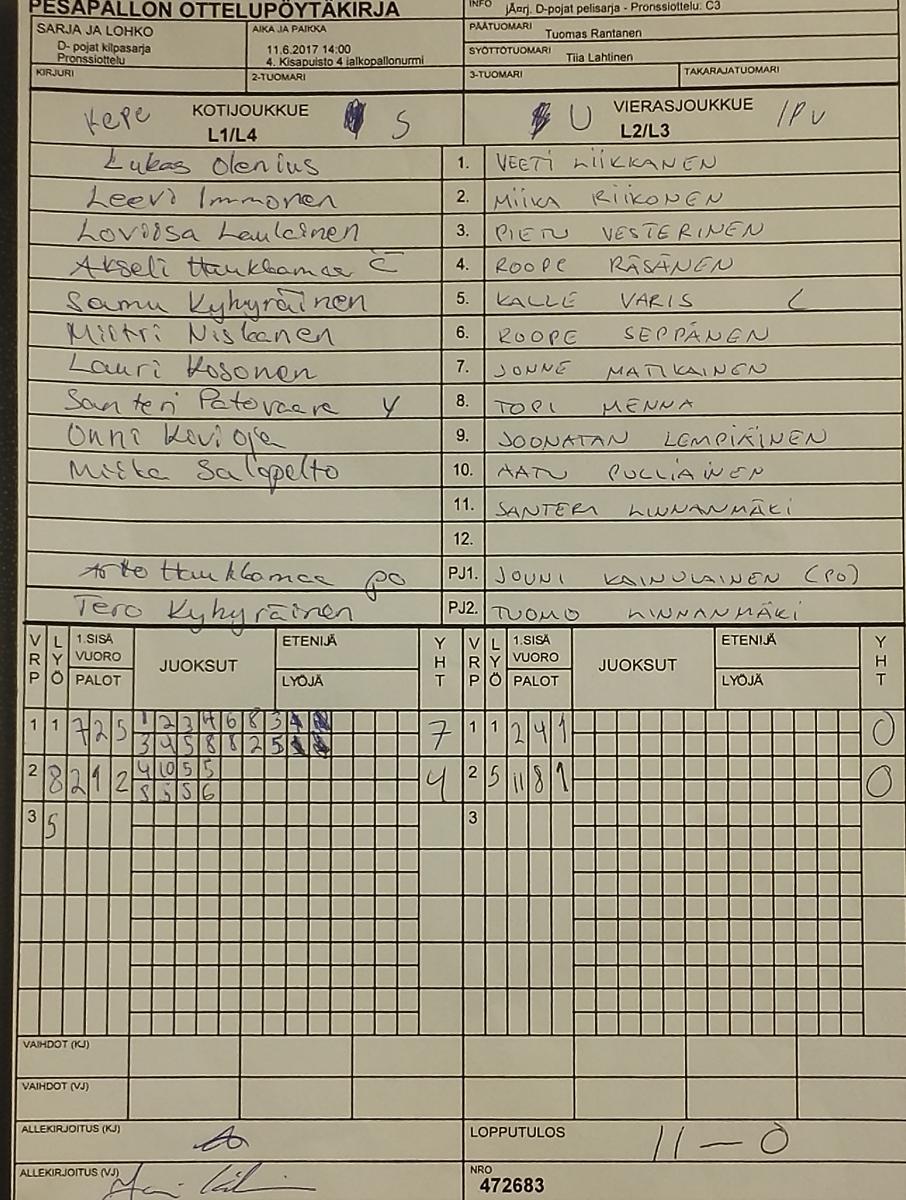 PESÄPALLON OTTELUPÖYTÄKIRJA
INFO jÄ¤rj. D-pojat pelisarja - Pronssiottelu: C3
SARJA JA LOHKO
D- pojat kilpasarja
Pronssiottelu
AIKA JA PAIKKA
11.6.2017 14:00
4. Kisapuisto 4 jalkopallonurmi
PÄÄTUOMARI Tuomas Rantanen
SYÖTTÖTUOMARI Tiia Lahtinen
KIRJURI 2-TUOMARI 3-TUOMARI TAKARAJATUOMARI
KePe KOTIJOUKKUE S U VIERASJOUKKUE IPV
L1/L4 L2/L3
Lukas Olenius 1. VEETI LIIKKANEN
Leevi Immonen 2. MIIKA RIIKONEN
Loviisa Laulainen 3. PIETU VESTERINEN
Akseli Haukkamaa C 4. ROOPE RÄSÄNEN
Samu Kyhyräinen 5. KALLE VARIS C
Miitri Niskanen 6. ROOPE SEPPÄNEN
Lauri Kosonen 7. JONNE MATIKAINEN
Santeri Patovaara Y 8. TOPI MENNA
Onni Kovioja 9. JOONATAN LEMPIÄINEN
Miska Salopelto 10. AATU PULLIAINEN
11. SANTERI LINNANMÄKI
12.
Arto Haukkamaa po PJ1. JOUNI KAINULAINEN (PO)
Tero Kyhyräinen PJ2. TUOMO LINNANMÄKI
VRP LYÖ 1.SISÄ VUORO PALOT JUOKSUT ETENIJÄ LYÖJÄ YHT VRP LYÖ 1.SISÄ VUORO PALOT JUOKSUT ETENIJÄ LYÖJÄ YHT
1 1 7 2 5 1 2 3 4 6 8 3 7 1 1 2 4 1 0
3 4 5 8 8 2 5
2 8 2 9 2 4 10 5 5 4 2 5 11 8 1 0
5 5 5 6
3 5 3
VAIHDOT (KJ)
VAIHDOT (VJ)
ALLEKIRJOITUS (KJ) LOPPUTULOS 11 — 0
ALLEKIRJOITUS (VJ) NRO
472683